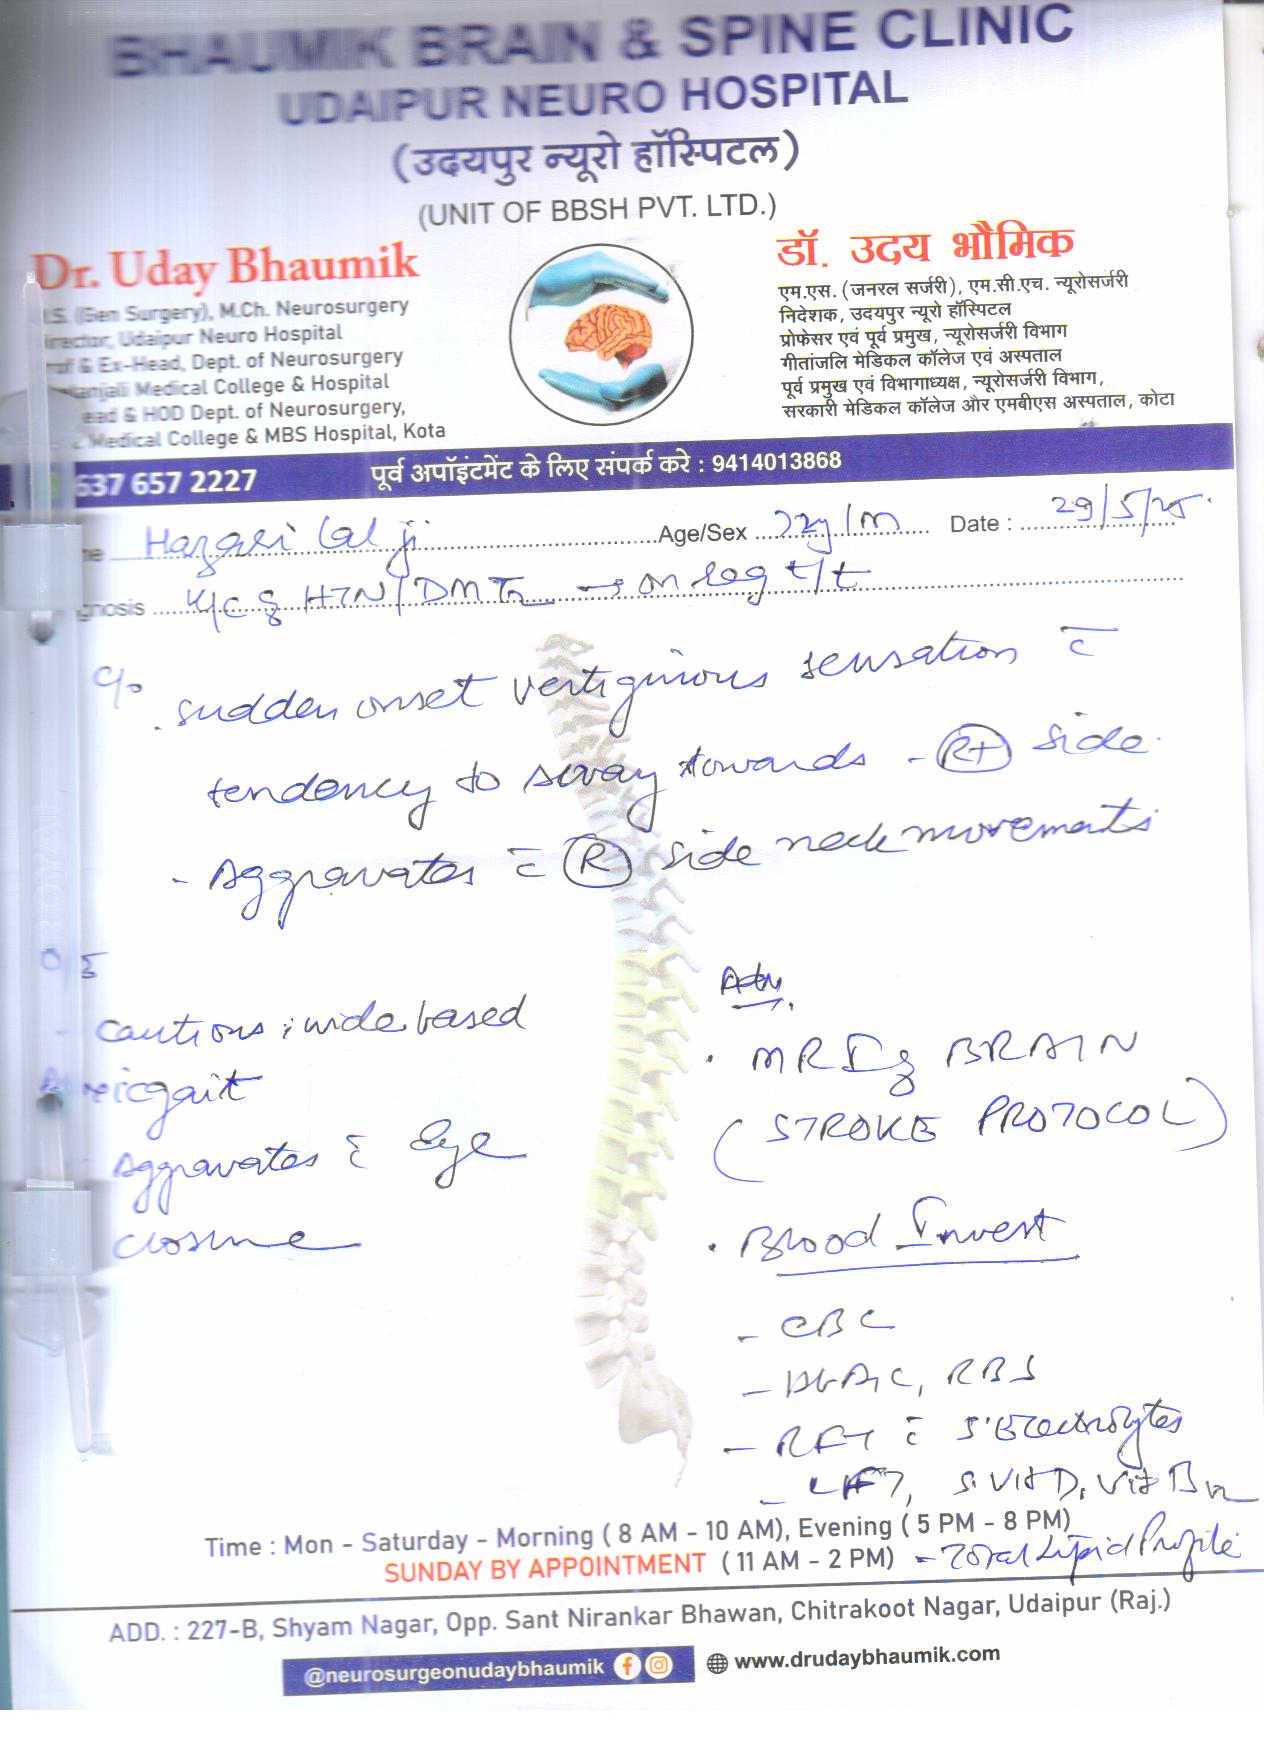 BHAUMIK BRAIN & SPINE CLINIC
UDAIPUR NEURO HOSPITAL
(उदयपुर न्यूरो हॉस्पिटल)
(UNIT OF BBSH PVT. LTD.)
Dr. Uday Bhaumik
(Gen Surgery), M.Ch. Neurosurgery
Udaipur Neuro Hospital
& Ex-Head, Dept. of Neurosurgery
Medical College & Hospital
& HOD Dept. of Neurosurgery,
Medical College & MBS Hospital, Kota
डॉ. उदय भौमिक
एम.एस. (जनरल सर्जरी), एम.सी.एच. न्यूरोसर्जरी
निदेशक, उदयपुर न्यूरो हॉस्पिटल
प्रोफेसर एवं पूर्व प्रमुख, न्यूरोसर्जरी विभाग
गीतांजलि मेडिकल कॉलेज एवं अस्पताल
पूर्व प्रमुख एवं विभागाध्यक्ष, न्यूरोसर्जरी विभाग,
सरकारी मेडिकल कॉलेज और एमबीएस अस्पताल, कोटा
637 657 2227 पूर्व अपॉइंटमेंट के लिए संपर्क करे : 9414013868
Hazari Lal ji Age/Sex /m Date : 29/5/25
K/C HTN/DM → on reg t/t
c/o
sudden onset vertiginous sensation c̄
tendency to sway towards - Rt side
- Aggravates c̄ R side neck movements
O/E
- cautious, wide based
gait
Aggravates c̄ Eye
closure
Adv.
. MRI BRAIN
(STROKE PROTOCOL)
. Blood Invest
- CBC
- HbA1C, RBS
- RFT c̄ S. Electrolytes
- LFT, S. Vit D, Vit B12
- Total Lipid Profile
Time : Mon - Saturday - Morning ( 8 AM - 10 AM), Evening ( 5 PM - 8 PM)
SUNDAY BY APPOINTMENT ( 11 AM - 2 PM)
ADD. : 227-B, Shyam Nagar, Opp. Sant Nirankar Bhawan, Chitrakoot Nagar, Udaipur (Raj.)
@neurosurgeonudaybhaumik www.drudaybhaumik.com